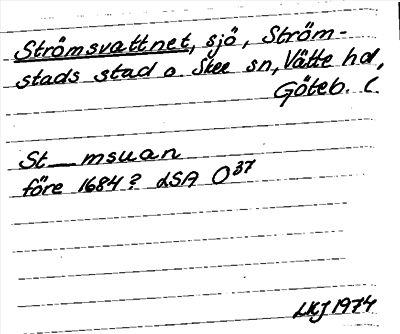 Strömsvattnet, sjö, Ström-
stads stad o. Skee sn, Vätte hd,
Göteb. l.
St__msuan
före 1684? LSA O37
LKJ 1974